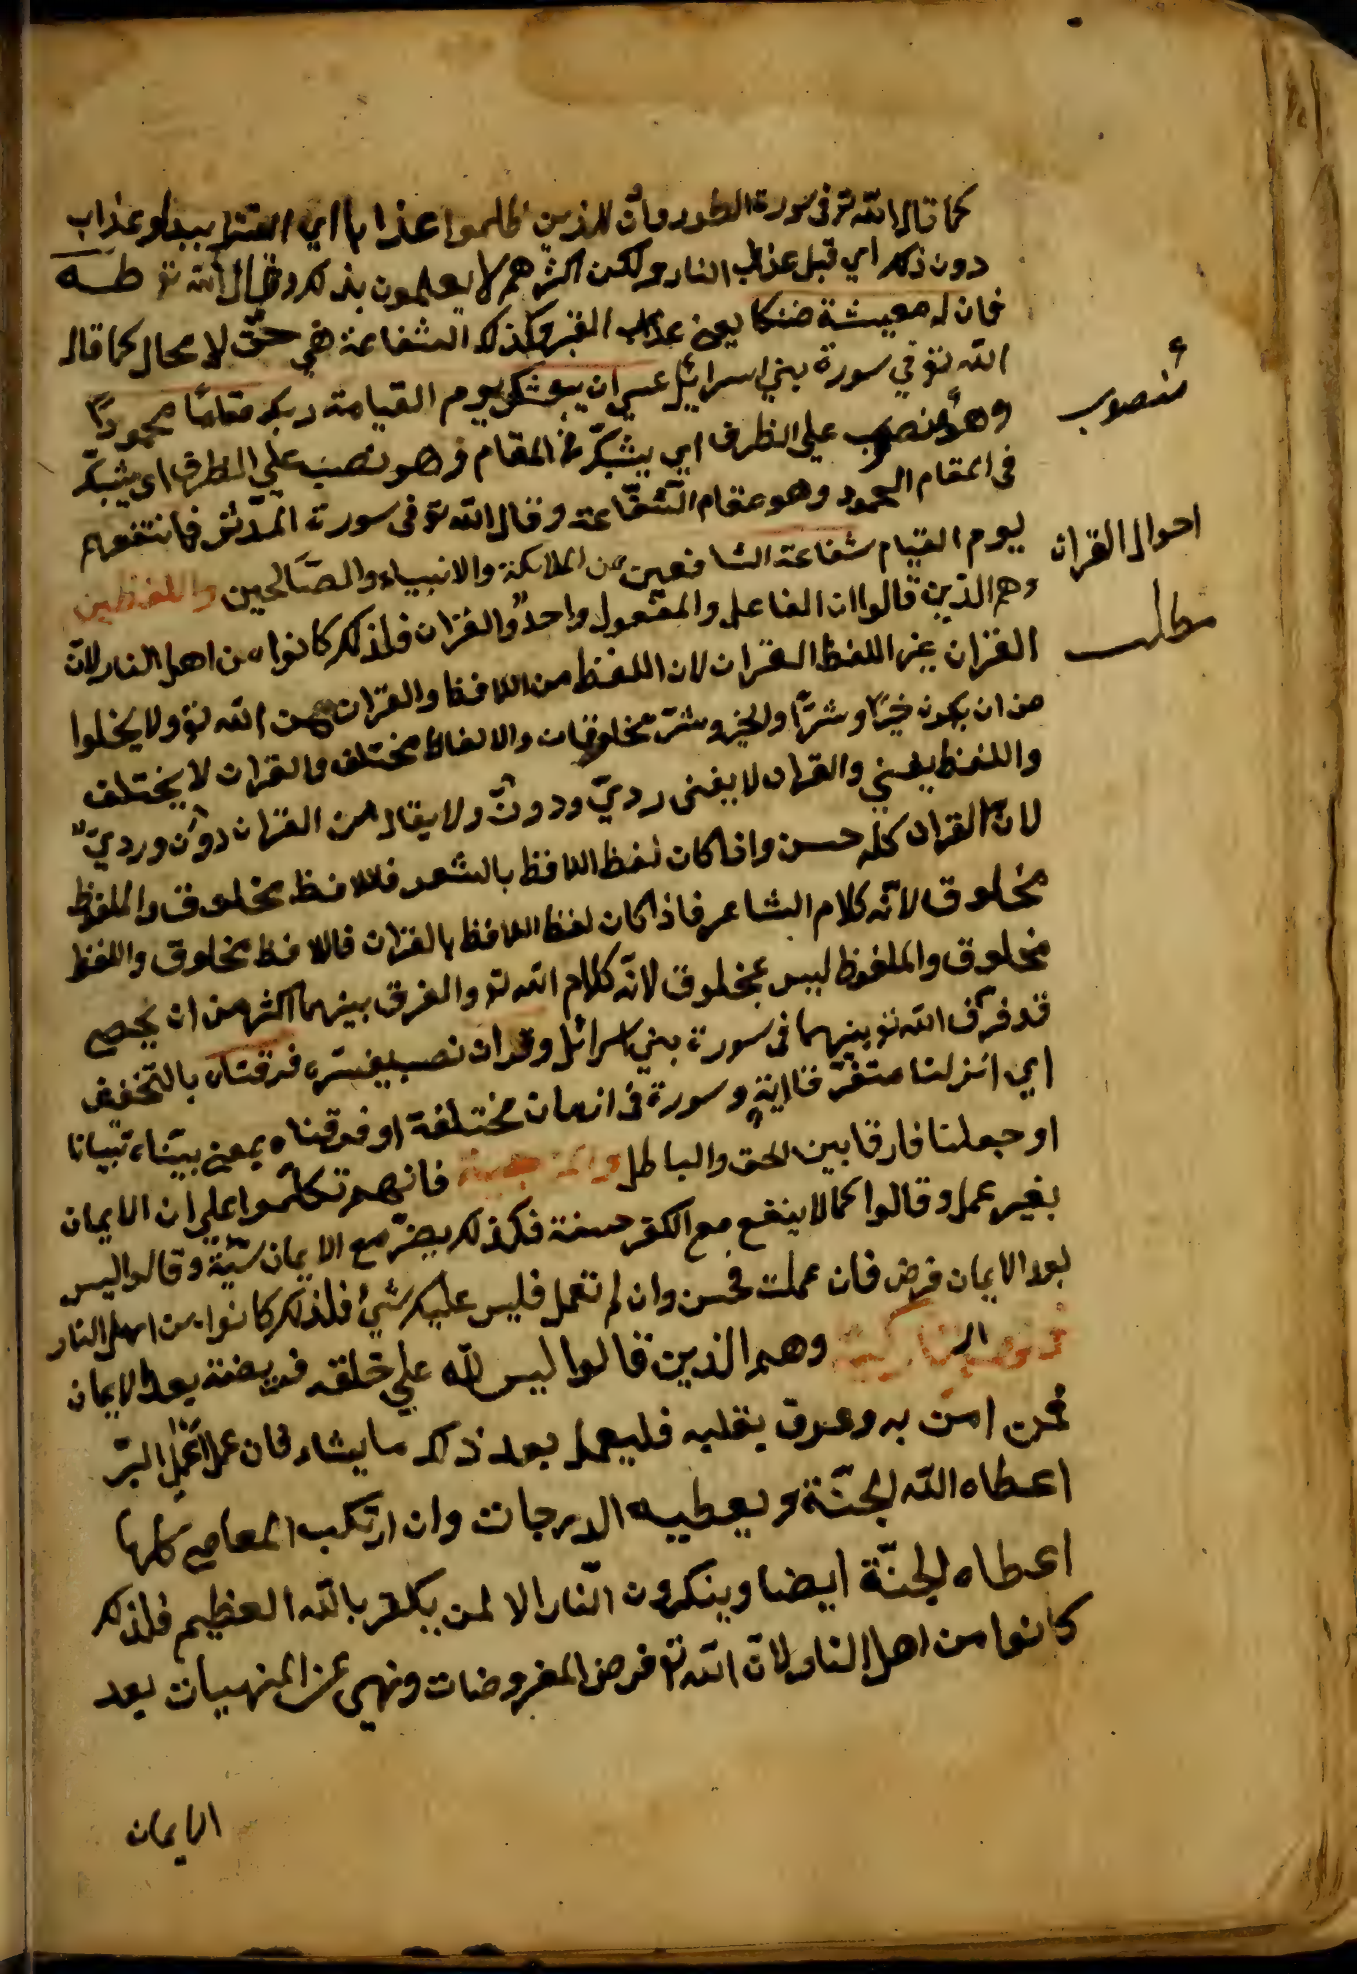 كما قال الله تو فى سورة الطور وان للذين ظلموا عذابا اي القتل ببدر او عذاب
دون ذلك اي قبل عذاب النار ولكن اكثرهم لا يعلمون بذلك وقال الله تو طه
فان له معيشة ضنكا يعني عذاب القبر وكذلك الشفاعة هي حق لا محال كما قال
الله تو في سورة بني اسرائيل عسي ان يبعثك يوم القيامة ربك مقاما محمودا
وهو منصوب علي الظرف اي المقام وهو نصب علي الظرف اي
فى المقام المحمود وهو مقام الشفاعة وقال الله تو فى سورة المدثر فما تنفعهم
يوم القيام شفاعة الشافعين من الملائكة والانبياء والصالحين واللفظين
وهم الذين قالوا ان الفاعل والمفعول واحد والقران فلذلك كانوا من اهل النار لان
القران غير اللفظ القران لان اللفظ من اللافظ والقران من الله تو ولا يخلوا
من ان يكون خيرا وشرا والخير وشر مخلوقان والالفاظ مختلف والقران لا يختلف
واللفظ يفني والقران لا يفنى ردي ودون ولا يقال من القران دون وردي
لان القران كله حسن واذا كان لفظ اللافظ بالشعر فاللافظ مخلوق والملفوظ
مخلوق لانه كلام الشاعر فاذا كان لفظ اللافظ بالقران فاللافظ مخلوق واللفظ
مخلوق والملفوظ ليس بمخلوق لانه كلام الله تو والفرق بينهما اكثر من ان يحصي
قد فرق الله تو بينهما فى سورة بني اسرائل وقران نصب يفسره فرقناه بالتخفيف
اي انزلنا متفرقا اية وسورة فى ازمان مختلفة او فرقناه بمعني بيناه تبيانا
او جعلنا فارقا بين الحق والباطل والمرجية فانهم تكلموا علي ان الايمان
بغير عمل وقالوا كما لا ينفع مع الكفر حسنة فكذلك يضر مع الايمان سيئة وقالوا ليس
بعد الايمان فرض فان عملت فحسن وان لم تعمل فليس عليك شيئ فلذلك كانوا من اهل النار
وهم الذين قالوا ليس لله علي خلقه فريضة بعد الايمان
فمن امن به وعرف بقلبه فليعمل بعد ذلك ما يشاء فان عمل اعمل البر
اعطاه الله الجنة ويعطيه الدرجات وان ارتكب المعاصي كلها
اعطاه الجنة ايضا وينكرون النار الا لمن يكفر بالله العظيم فلذلك
كانوا من اهل النار لان الله تو فرض المفروضات ونهي عن المنهيات بعد
الايمان
منصوب
احوال القران
مطلب